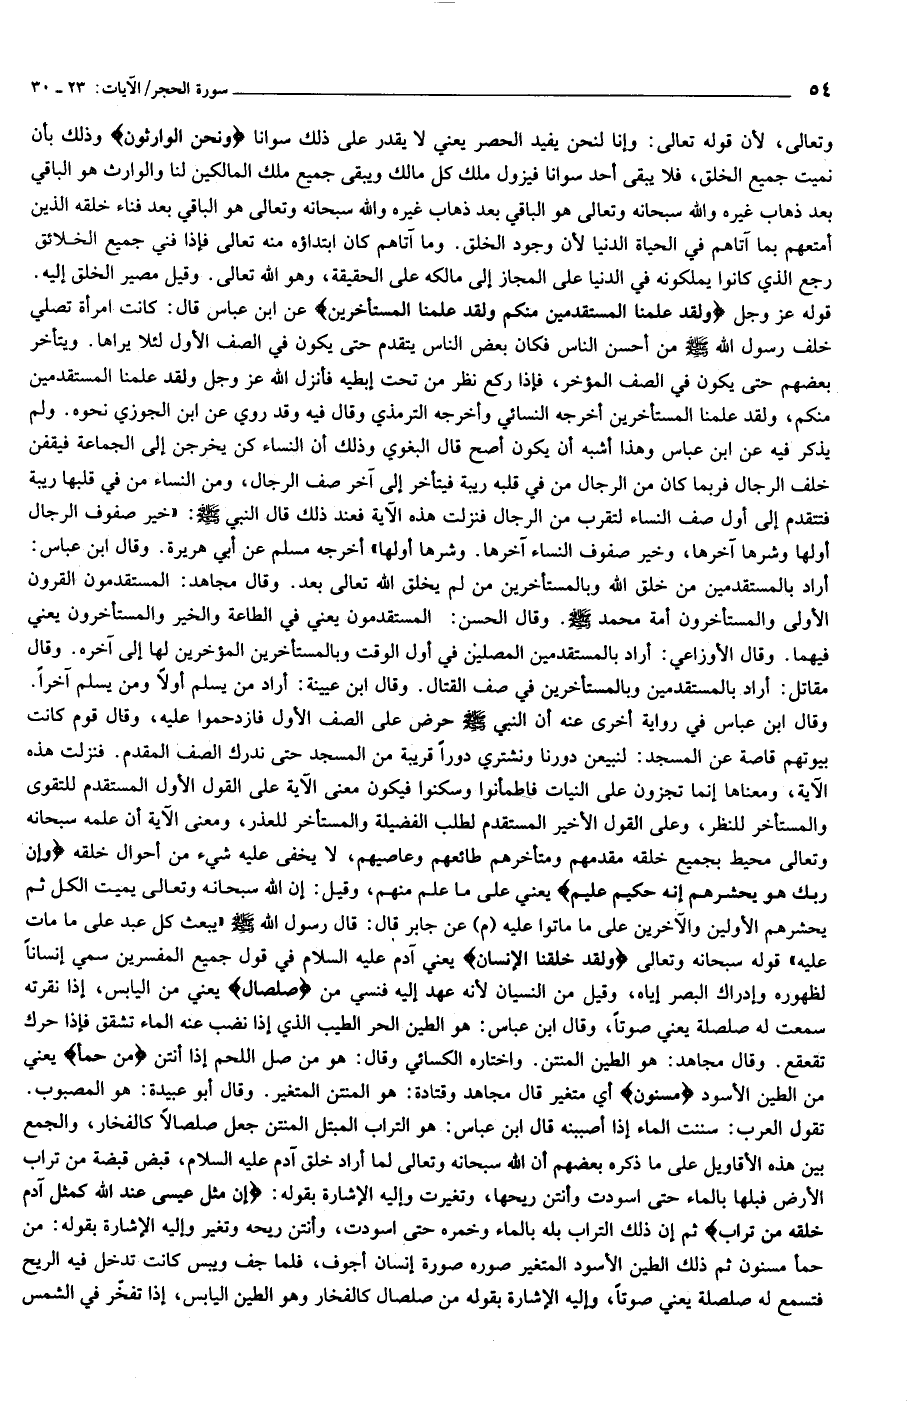 ٥٤ سورة الحجر/ الآيات: ٢٣ ـ ٣٠
وتعالى، لأن قوله تعالى: وإنا لنحن يفيد الحصر يعني لا يقدر على ذلك سوانا ﴿ونحن الوارثون﴾ وذلك بأن
نميت جميع الخلق، فلا يبقى أحد سوانا فيزول ملك كل مالك ويبقى جميع ملك المالكين لنا والوارث هو الباقي
بعد ذهاب غيره والله سبحانه وتعالى هو الباقي بعد ذهاب غيره والله سبحانه وتعالى هو الباقي بعد فناء خلقه الذين
أمتعهم بما آتاهم في الحياة الدنيا لأن وجود الخلق. وما آتاهم كان ابتداؤه منه تعالى فإذا فني جميع الخلائق
رجع الذي كانوا يملكونه في الدنيا على المجاز إلى مالكه على الحقيقة، وهو الله تعالى. وقيل مصير الخلق إليه.
قوله عز وجل ﴿ولقد علمنا المستقدمين منكم ولقد علمنا المستأخرين﴾ عن ابن عباس قال: كانت امرأة تصلي
خلف رسول الله ﷺ من أحسن الناس فكان بعض الناس يتقدم حتى يكون في الصف الأول لئلا يراها. ويتأخر
بعضهم حتى يكون في الصف المؤخر، فإذا ركع نظر من تحت إبطيه فأنزل الله عز وجل ولقد علمنا المستقدمين
منكم، ولقد علمنا المستأخرين أخرجه النسائي وأخرجه الترمذي وقال فيه وقد روي عن ابن الجوزي نحوه. ولم
يذكر فيه عن ابن عباس وهذا أشبه أن يكون أصح قال البغوي وذلك أن النساء كن يخرجن إلى الجماعة فيقفن
خلف الرجال فربما كان من الرجال من في قلبه ريبة فيتأخر إلى آخر صف الرجال، ومن النساء من في قلبها ريبة
فتتقدم إلى أول صف النساء لتقرب من الرجال فنزلت هذه الآية فعند ذلك قال النبي ﷺ: «خير صفوف الرجال
أولها وشرها آخرها، وخير صفوف النساء آخرها. وشرها أولها» أخرجه مسلم عن أبي هريرة. وقال ابن عباس:
أراد بالمستقدمين من خلق الله وبالمستأخرين من لم يخلق الله تعالى بعد. وقال مجاهد: المستقدمون القرون
الأولى والمستأخرون أمة محمد ﷺ. وقال الحسن: المستقدمون يعني في الطاعة والخير والمستأخرون يعني
فيهما. وقال الأوزاعي: أراد بالمستقدمين المصلين في أول الوقت وبالمستأخرين المؤخرين لها إلى آخره. وقال
مقاتل: أراد بالمستقدمين وبالمستأخرين في صف القتال. وقال ابن عيينة: أراد من يسلم أولاً ومن يسلم آخراً.
وقال ابن عباس في رواية أخرى عنه أن النبي ﷺ حرض على الصف الأول فازدحموا عليه، وقال قوم كانت
بيوتهم قاصة عن المسجد: لنبيعن دورنا ونشتري دوراً قريبة من المسجد حتى ندرك الصف المقدم. فنزلت هذه
الآية، ومعناها إنما تجزون على النيات فاطمأنوا وسكنوا فيكون معنى الآية على القول الأول المستقدم للتقوى
والمستأخر للنظر، وعلى القول الأخير المستقدم لطلب الفضيلة والمستأخر للعذر، ومعنى الآية أن علمه سبحانه
وتعالى محيط بجميع خلقه مقدمهم ومتأخرهم طائعهم وعاصيهم، لا يخفى عليه شيء من أحوال خلقه ﴿وإن
ربك هو يحشرهم إنه حكيم عليم﴾ يعني على ما علم منهم، وقيل: إن الله سبحانه وتعالى يميت الكل ثم
يحشرهم الأولين والآخرين على ما ماتوا عليه (م) عن جابر قال: قال رسول الله ﷺ «يبعث كل عبد على ما مات
عليه» قوله سبحانه وتعالى ﴿ولقد خلقنا الإنسان﴾ يعني آدم عليه السلام في قول جميع المفسرين سمي إنساناً
لظهوره وإدراك البصر إياه، وقيل من النسيان لأنه عهد إليه فنسي من ﴿صلصال﴾ يعني من اليابس، إذا نقرته
سمعت له صلصلة يعني صوتاً، وقال ابن عباس: هو الطين الحر الطيب الذي إذا نضب عنه الماء تشقق فإذا حرك
تقعقع. وقال مجاهد: هو الطين المنتن. واختاره الكسائي وقال: هو من صل اللحم إذا أنتن ﴿من حمأ﴾ يعني
من الطين الأسود ﴿مسنون﴾ أي متغير قال مجاهد وقتادة: هو المنتن المتغير. وقال أبو عبيدة: هو المصبوب.
تقول العرب: سننت الماء إذا أصببنه قال ابن عباس: هو التراب المبتل المنتن جعل صلصالاً كالفخار، والجمع
بين هذه الأقاويل على ما ذكره بعضهم أن الله سبحانه وتعالى لما أراد خلق آدم عليه السلام، قبض قبضة من تراب
الأرض فبلها بالماء حتى اسودت وأنتن ريحها، وتغيرت وإليه الإشارة بقوله: ﴿إن مثل عيسى عند الله كمثل آدم
خلقه من تراب﴾ ثم إن ذلك التراب بله بالماء وخمره حتى اسودت، وأنتن ريحه وتغير وإليه الإشارة بقوله: من
حمأ مسنون ثم ذلك الطين الأسود المتغير صوره صورة إنسان أجوف، فلما جف ويبس كانت تدخل فيه الريح
فتسمع له صلصلة يعني صوتاً، وإليه الإشارة بقوله من صلصال كالفخار وهو الطين اليابس، إذا تفخّر في الشمس